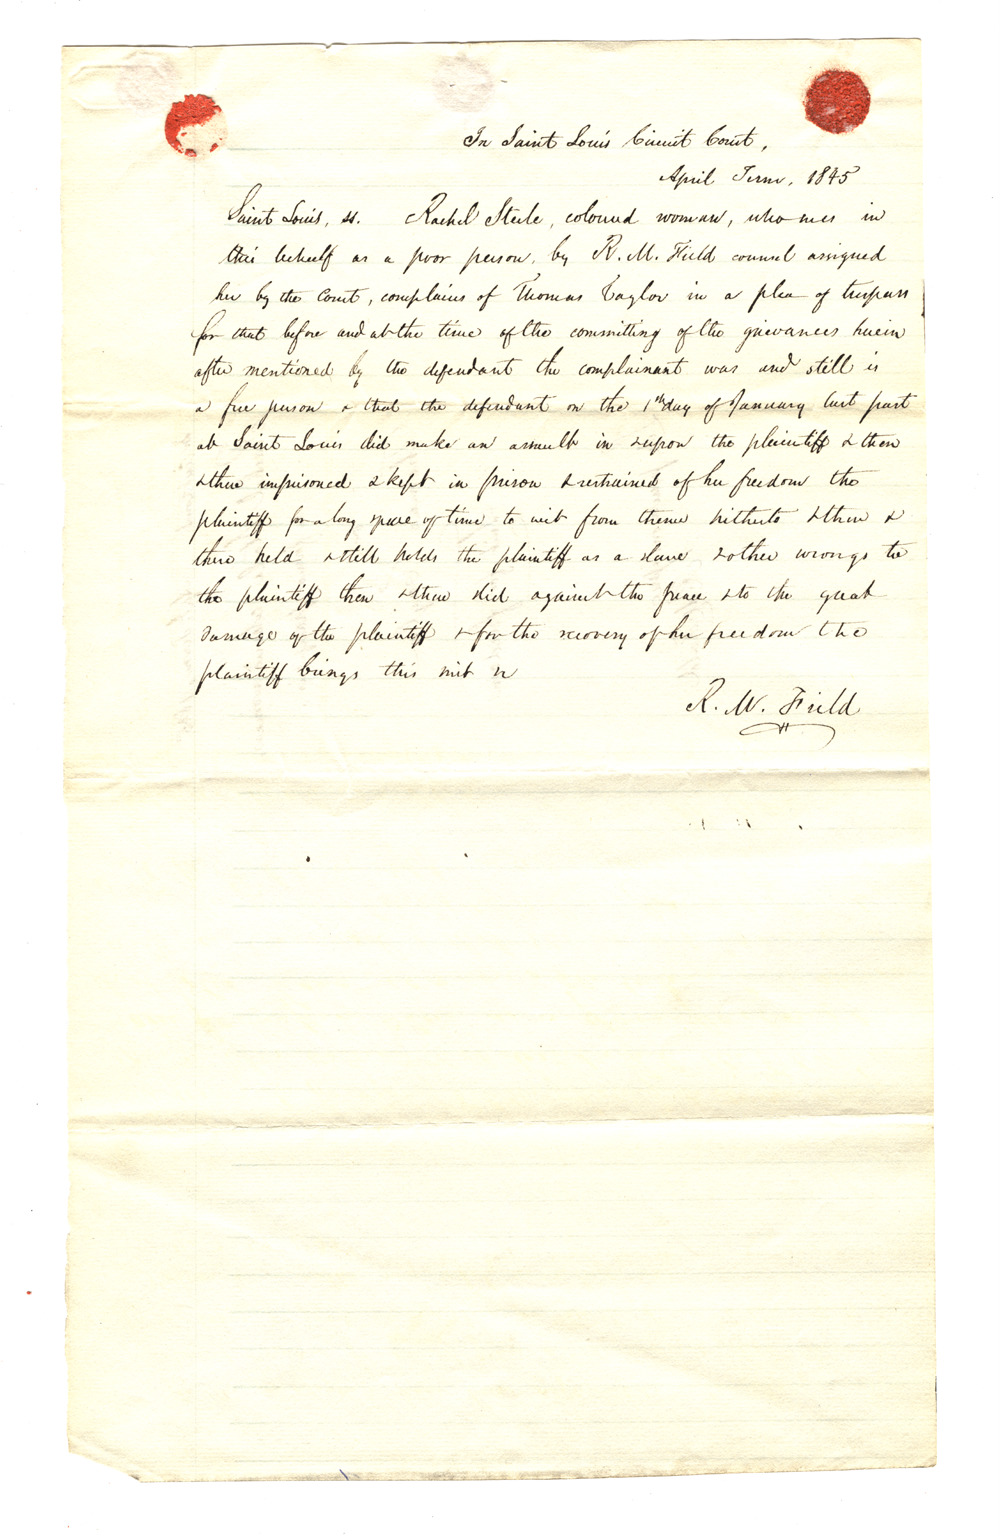 In Saint Louis Circuit Court,
April Term, 1845
Saint Louis, ss. Rachel Steele, coloured woman, who sues in
this behalf as a poor person, by R. M. Field counsel assigned
her by the Court, complains of Thomas Taylor in a plea of trespass
for that before and at the time of the committing of the grievances herein
after mentioned by the defendant the complainant was and still is
a free person & that the defendant on the 1th day of January last past
at Saint Louis did make an assault in & upon the plaintiff & then
& there imprisoned & kept in prison & restrained of her freedom the
plaintiff for a long space of time to wit from thence hitherto & then &
there held & still holds the plaintiff as a slave & other wrongs to
the plaintiff then & there did against the peace & to the great
damage of the plaintiff & for the recovery of her freedom the
plaintiff brings this suit
R. M. Field